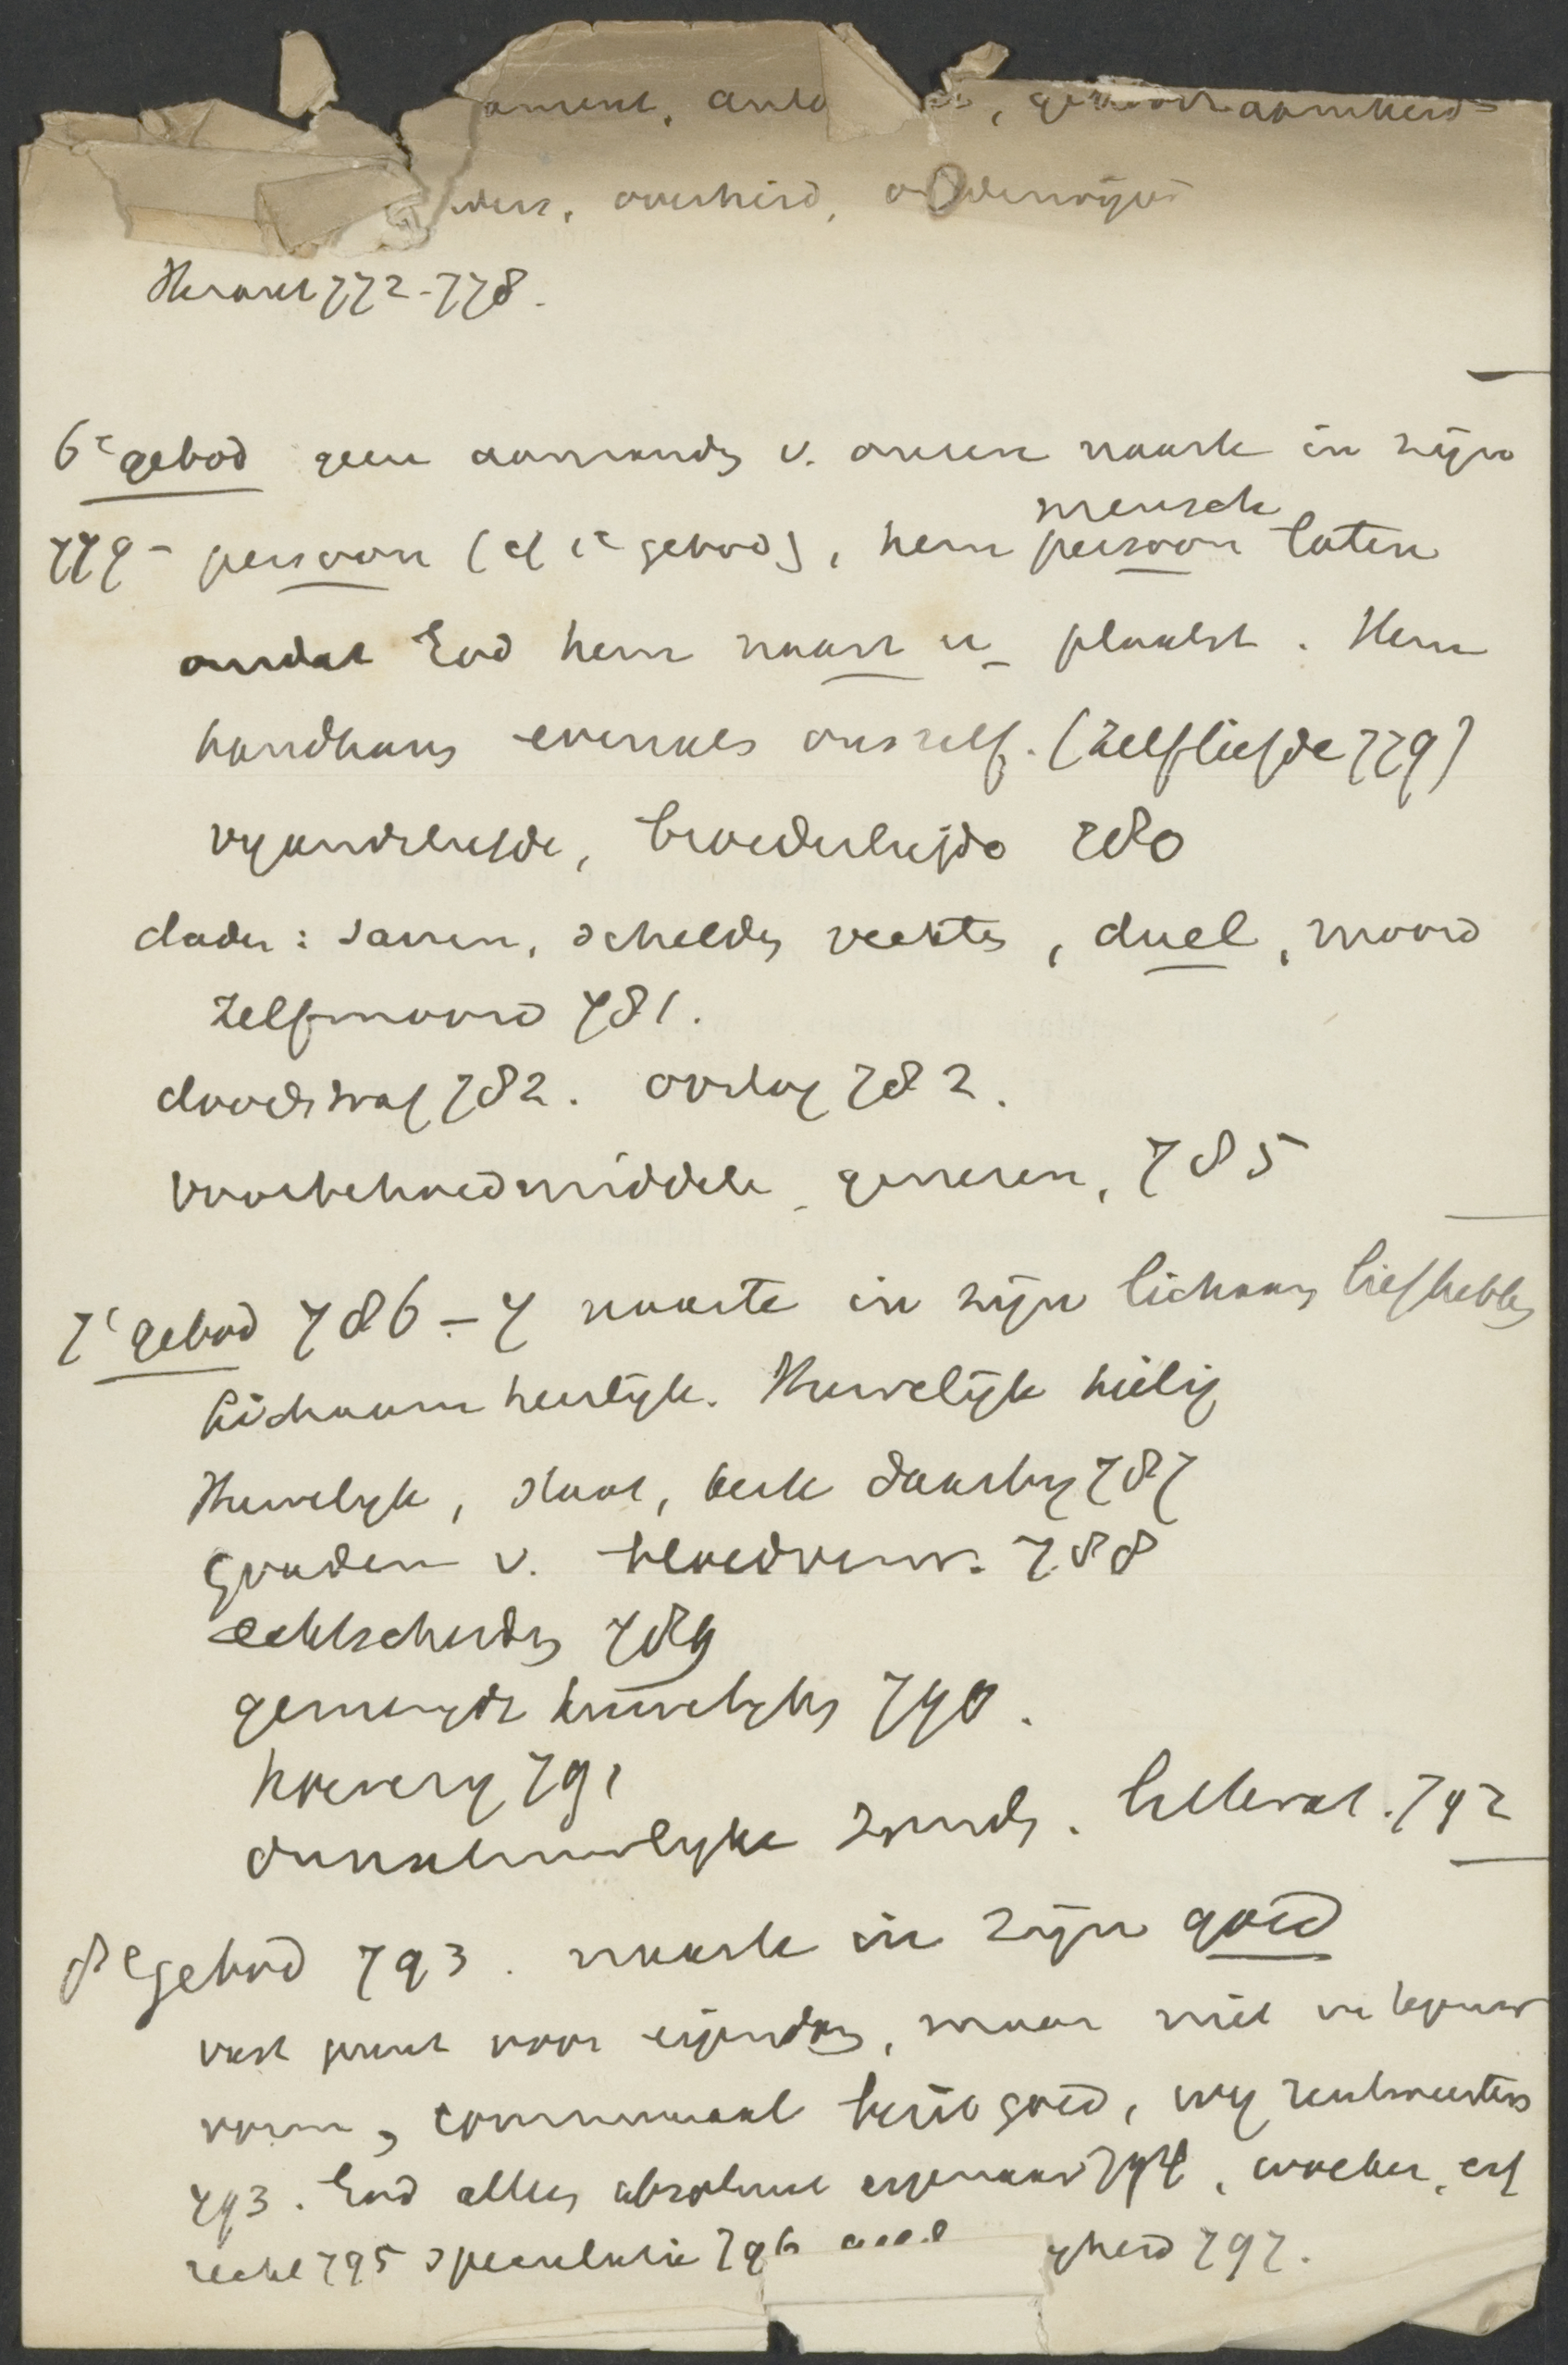 overheid, onderwijs
Heraut 772-778.
6e gebod geen aanranding v. onzen naaste in zijn
mensch
779- persoon (cf 1e gebod), hem persoon laten
omdat God hem naast u plaatst. Hem
handhaven evenals onszelf. (zelfliefde 779)
vyandsliefde, broederliefde 780
daden: schelden vechten, duel, moord
zelfmoord 781.
doodstraf 782. oorlog 782.
voorbehoedmiddelen, genezen, 785
7e gebod 786-7 naaste in zijn lichaam liefhebben
Lichaam heerlijk. Huwelijk heilig
Huwelyk, staat, kerk daarby 787
Graden v. bloedverw. 788
echtscheiding 789
gemengde huwelyken 790.
hoerery 791
onnatuurlyke zonden. Celibaat. 792
8e gebod 793. naaste in zijn goed
vast punt voor eigendom, maar niet in
vorm, communaal bezit goed, wy rentmeesters
793. God alleen absoluut eigenaar 794, woeker, erf
recht 795 speculatie 796 gheid 797.